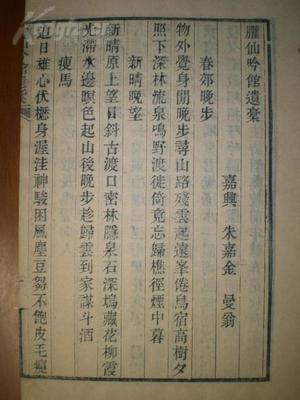 臞仙吟館遺稾
嘉興 朱嘉金 曼翁
春郊晚步
物外覺身閒晚步尋山路殘雲起遠峯倦鳥宿高樹夕
照下深林流泉鳴野渡徙倚竟忘歸樵徑煙中暮
新晴晚望
新晴原上望日斜古渡口密林隱泉石深塢藏花柳霞
光溯水邊暝色起山後晚步趁歸雲到家謀斗酒
瘦馬
追日雄心伏櫪身渥洼神駿困風塵豆芻不飽皮毛瘦